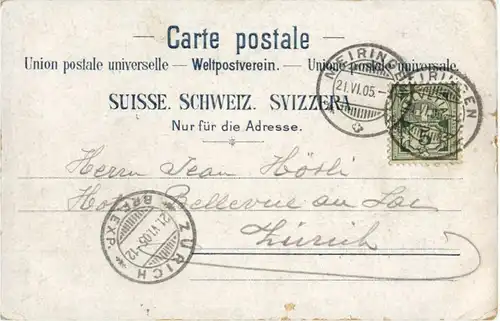 Carte postale
Union postale universelle — Weltpostverein. — Unione postale universale.
SUISSE. SCHWEIZ. SVIZZERA
Nur für die Adresse.
MEIRINGEN
21.VI.05.
MEIRINGEN
Herrn Jean Hösli
Hotel Bellevue au Lac
Zürich
ZÜRICH
21.VI.05-12
BRF. EXP.